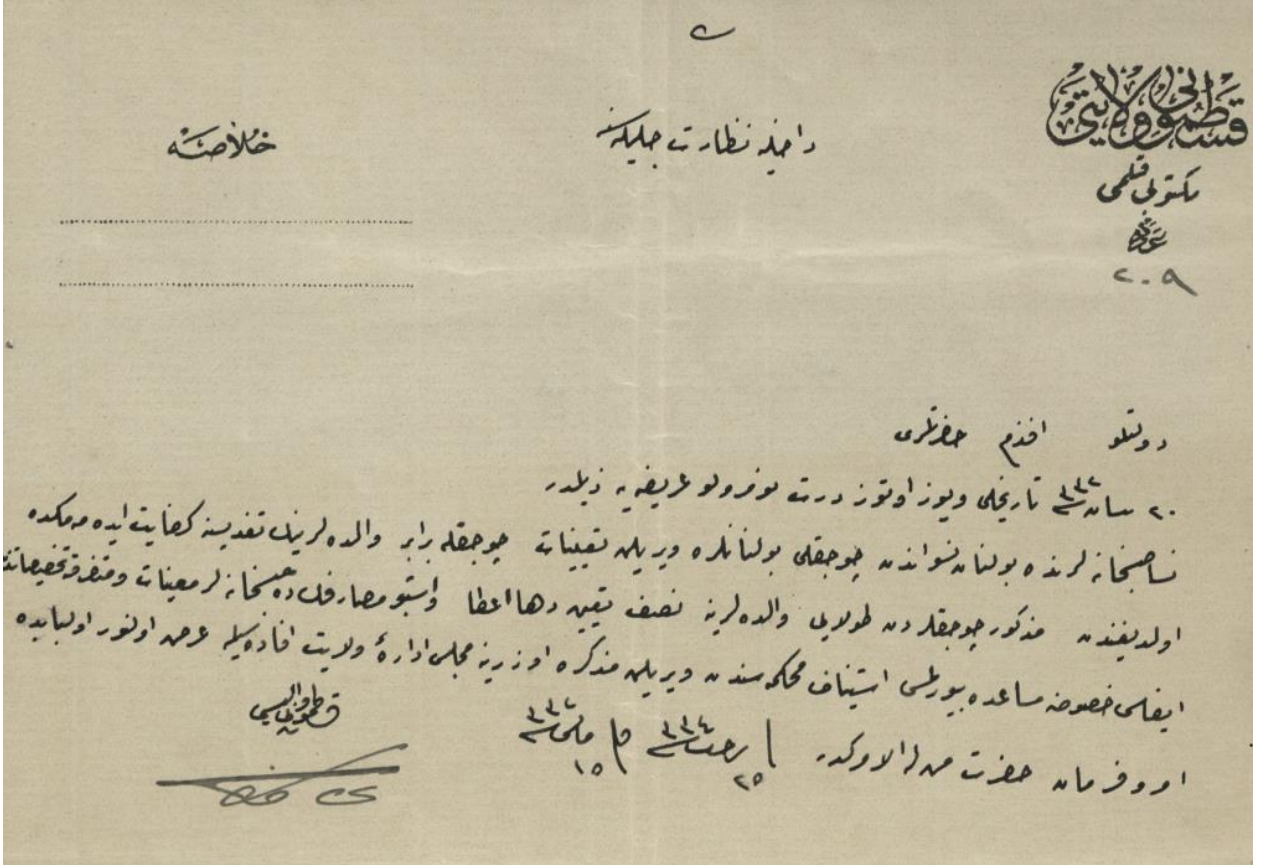 قسطمونی ولایتی
مکتوبی قلمی
عدد
٢٠٩
داخلیه نظارت جلیله‌سنه
خلاصه
دولتلو افندم حضرتلری
٢٠ نیسان سنه ٣٣٢ تاریخلی ویوز اوتوز درت نومرولو عریضه‌یه ذیلدر
نسا حبسخانه‌لرنده بولنان نسواندن چوجقلی بولنانلره ویریلن تعیینات چوجقله برابر والده‌لرینك تغدیسنه کفایت ایده‌مه‌مکده
اولدیغندن مذکور چوجقلردن طولایی والده‌لرینه نصف تعیین دها اعطا واشبو مصارفك ده حبسخانه‌لر معینات ومتفرقه تخصیصاتندن
ایفاسی خصوصنه مساعده بیورلمسی استیناف محکمه‌سندن ویریلن مذکره اوزرینه مجلس اداره ولایت افاده‌سیله عرض اولنور اولبابده
امر وفرمان حضرت من له الامرکدر ٢٥ رجب سنه ٣٣٤ م ١٥ مایس سنه ٣٣٢
قسطمونی والیسی